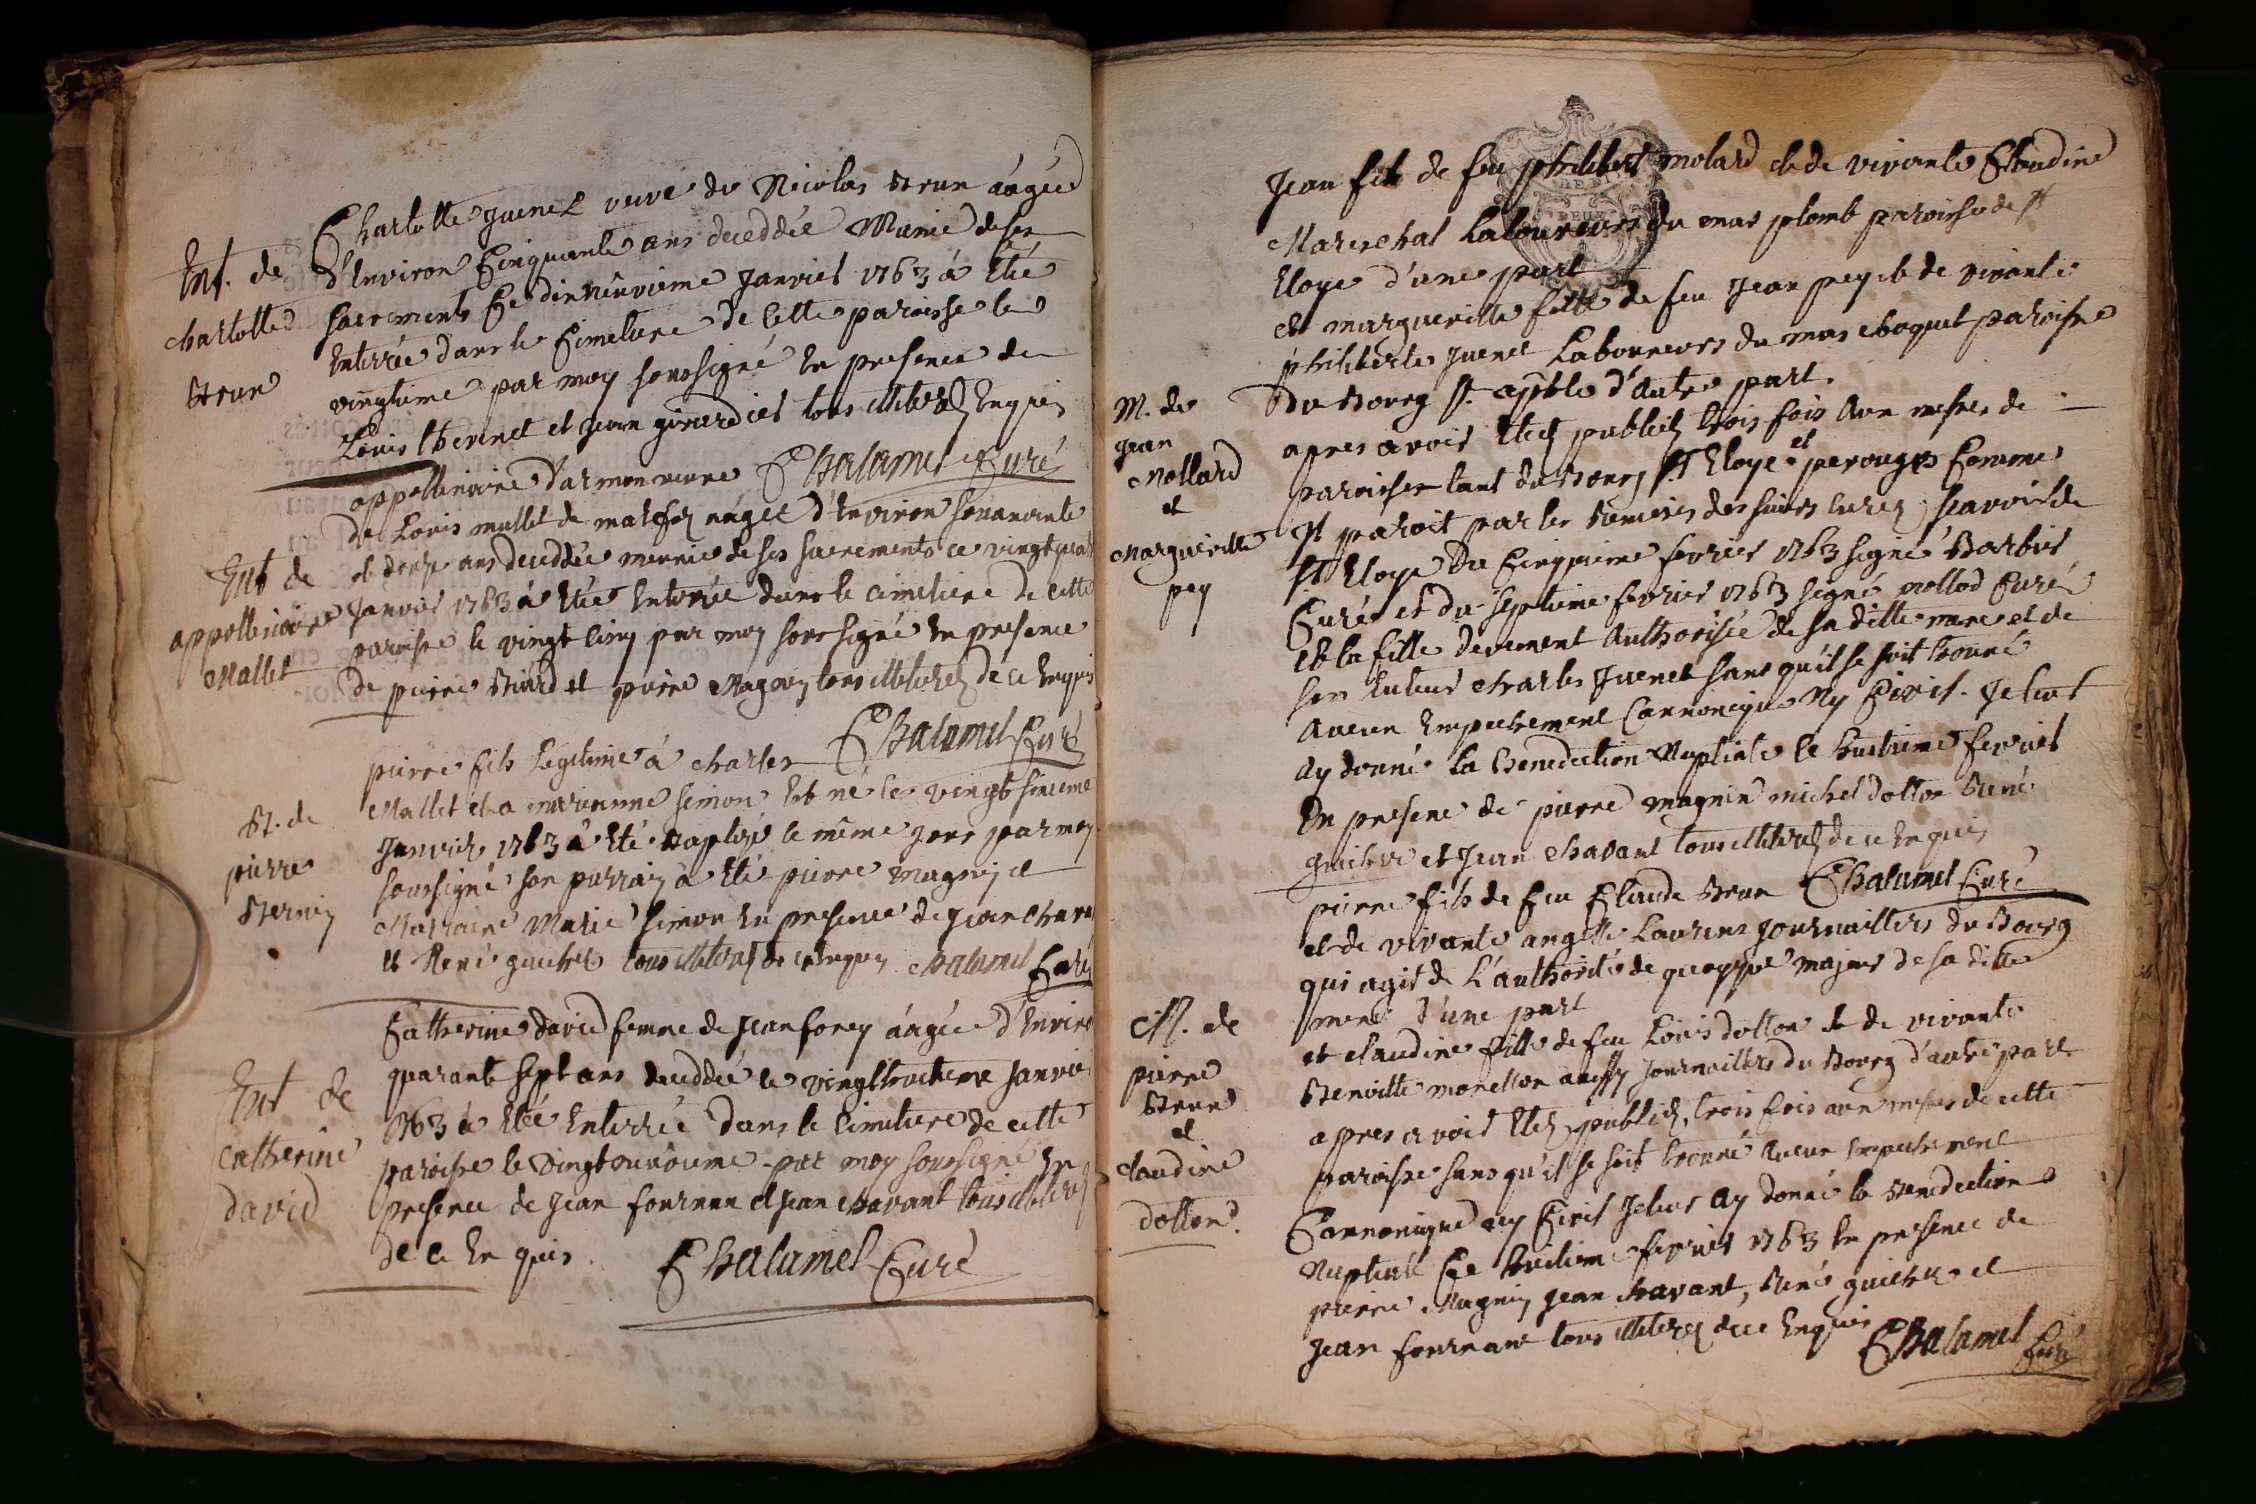 Charlotte Juenet veuve de Nicolas Brun áagée
d'Environ Cinquante ans deceddée Munie de ses
Ent. de
charlotte
Brun
sacrements Ce dixneuvieme Janvier 1763 á Eté
Enterrée dans le Cimetiere de Cette paroisse le
vingtieme par moy soussigné En presence de
Louis thevenet et Jean girardiet tous illiterez Enquis
Chalamel Curé
appollinaire d'armon veuve
de Louis mallet de áagée d'Environ soixante
et douze ans deceddée munie de ses sacrements ce vingt quat
Ent de
appollinaire
Mallet
Janvier 1763 á Eté Enterrée dans le cimetiere de cette
paroisse le vingt cinq par moy soussigné En presence
de pierre Biard et pierre Magnin tous illiterez de ce Enquis
Chalamel Curé
pierre fils Légitime á charles
Mallet et a marianne simon Est né le vingt sixieme
B. de
pierre
Janvier 1763 á Eté Baptisé le même jour par moy
soussigné son parrain á Eté pierre magnin et
Marraine Marie simon En presence de Jean chava
et René guichet tous illiterez de ce Enquis Chalamel Curé
Catherine david femme de Jean forey áagée d'Enviro
quarante sept ans deceddée le vingthuitieme Janvie
Ent de
catherine
david
1763 á Eté Enterrée dans le Cimetiere de cette
paroisse le vingtneuvieme par moy soussigné En
presence de Jean fournan et Jean chavant tous illiterez
de ce Enquis. Chalamel Curé
Jean fils de feu philibert molard et de vivante Claudine
Mareschal Laboureurs du mas plomb paroisse de st
Eloye d'une part
et margueritte fille de feu Jean pey et de vivante
philiberte Juenet Laboureurs du mas choquet paroisse
Du Bourg st. d'autre part.
M. de
jean
Mollard
et
Margueritte
pey
apres avoir Etez publiez trois fois aux messes de
paroisse tant du Bourg st Eloye et perouges Comme
Il paroit par les Remises des sieurs curez, sçavoir de
st. Eloye Du Cinquieme fevrier 1763 signé Barbier
Curé et du septieme fevrier 1763 signé mollod Curé
Et la fille deuement Authorisée de sa ditte mere et de
son tuteur charles Juenet sans qu'il se soit trouvé
Aucun Empechement Cannonique Ny Civil. Je leur
Ay donné la Benediction Nuptiale le huitieme fevrier
En presence de pierre magnin michel dotton René
guichet et Jean chavant tous illiterez de ce Enquis
Chalamel Curé
pierre fils de feu Claude Brun
et de vivante Laurent journailliers du Bourg
qui agit de L'authorité de quoyque majeur de sa ditte
mere d'une part
M. de
pierre
Brun
et
claudine
dotton.
et claudine fille de feu Louis dotton et de vivante
Benoitte morellon aussy journailliers du Bourg d'autre part
apres avoir Etez publiez, trois fois aux messes de cette
paroisse sans qu'il se soit trouvé Aucun Empechement
Cannonique ny Civil Je leur Ay donné la Benediction
Nuptiale Ce huitieme fevrier 1763 En presence de
pierre Magnin jean chavant, René guichet et
Jean fournant tous illiterez de ce Enquis Chalamel
Curé